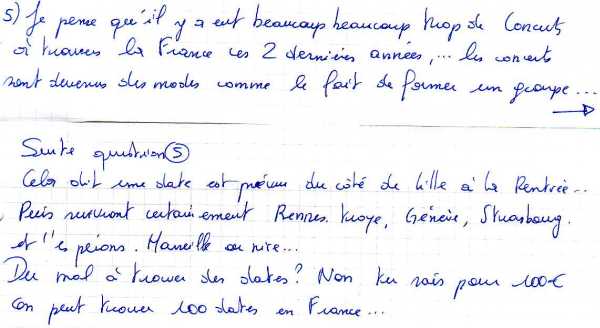 5) Je pense qu'il y a eut beaucoup beaucoup trop de Concerts
à travers la France ces 2 dernières années,... les concerts
sont devenus des modes comme le fait de former un groupe...
Suite question ⑤
Cela dit une date est prévue du côté de Lille à la Rentrée..
Puis suivront certainement Rennes. Troye, Génève, Strasbourg.
et l'espérons. Marseille ou nice...
Du mal à trouver des dates? Non tu sais pour 100€
on peut trouver 100 dates en France...